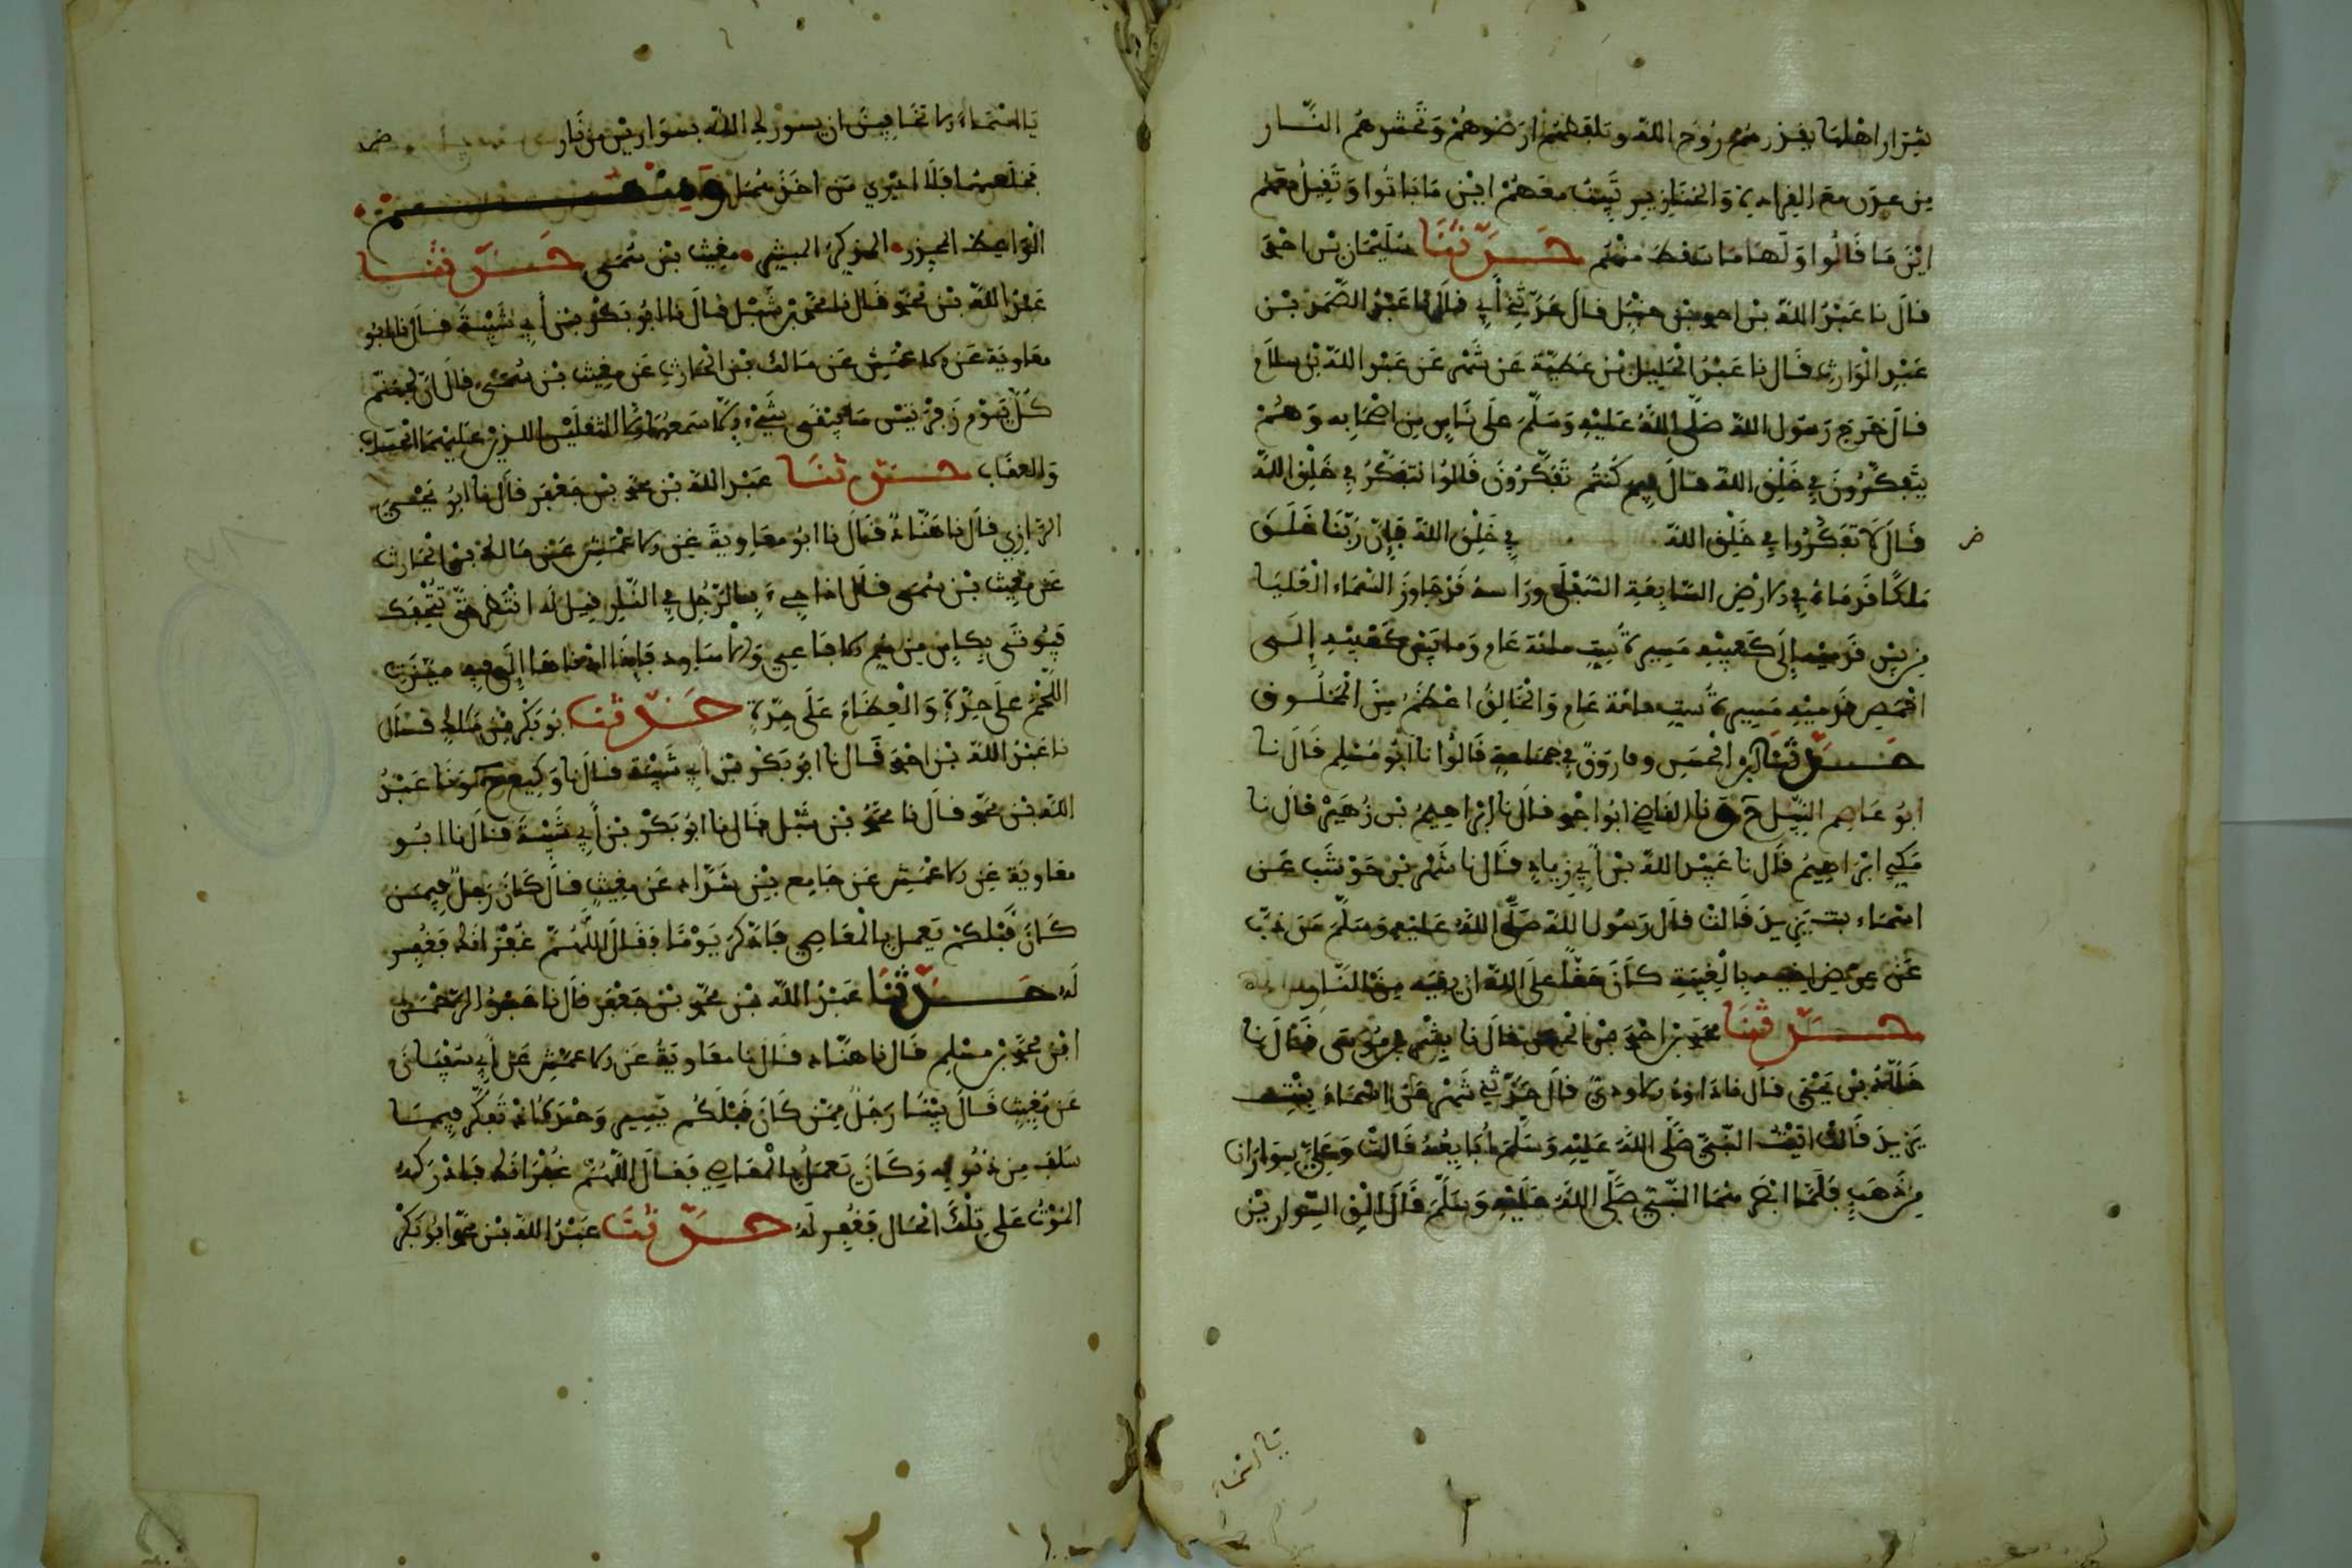 شرار اهلها يقذرهم روح الله وتلفظهم ارضوهم وتحشرهم النار
من عدن مع القردة والخنازير تبيت معهم اين ما باتوا وتقيل معهم
اين ما قالوا ولها ما سقط منهم حدثنا سليمان بن احمد
قال نا عبد الله بن احمد بن حنبل قال حدثني أبي قال نا عبد الصمد بن
عبد الوارث قال نا عبد الجليل بن عطية عن شهر عن عبد الله بن سلام
قال خرج رسول الله صلى الله عليه وسلم على ناس من اصحابه وهم
يتفكرون في خلق الله قال فيم كنتم تفكرون قالوا نتفكر في خلق الله
قال لا تفكروا في خلق الله في خلق الله فإن ربنا خلق
ملكا قدماه في الارض السابعة السفلى وراسه قد جاوز السماء العليا
من بين قدميه إلى كعبيه مسيرة ست مائة عام وما بين كعبيه إلى
اخمص قدميه مسيرة ست مائة عام والخالق اعظم من المخلوق
حدثنا الحسن وفاروق في جماعة قالوا نا أبو مسلم قال نا
ابو عاصم النبيل ح ونا القاضي ابو احمد قال نا إبراهيم بن زهير قال نا
مكي ابراهيم قال نا عبيد الله بن أبي زياد قال نا شهر بن حوشب عن
اسماء بنت يزيد قالت قال رسول الله صلى الله عليه وسلم من ذب
عن عرض اخيه بالغيبة كان حقا على الله ان يقيه من النار
حدثنا محمد بن احمد بن الحسن قال نا بشر بن موسى قال نا
خلاد بن يحيى قال نا داود الاودي قال حدثني شهر عن اسماء بنت
يزيد قالت اتيت النبي صلى الله عليه وسلم لأبايعه قالت وعلي سواران
من ذهب فلما ابصرهما النبي صلى الله عليه وسلم قال الق السوارين
يا اسماء
يا اسماء اما تخافين ان يسورك الله بسوارين من نار
فخلعتهما فلا ادري من اخذهما ومنهم
الواعظ المذكر المبشر مغيث بن سمي حدثنا
عبد الله بن محمد قال نا محمد بن شبل قال نا ابو بكر بن أبي شيبة قال نا ابو
معاوية عن الاعمش عن مالك بن الحارث عن مغيث بن سمي قال ان لجهنم
كل يوم زفرتين ما يبقى شيء إلا سمعهما إلا الثقلين الذين عليهما الحساب
والعقاب حدثنا عبد الله بن محمد بن جعفر قال نا ابو يحيى
الرازي قال نا هناد قال نا ابو معاوية عن الاعمش عن مالك بن الحارث
عن مغيث بن سمي قال اذا جيء بالرجل في النار قيل له انتظر حتى نتحفك
فيوتى بكاس من سم الافاعي والاساود فإذا ادناها إلى فيه ميزت
اللحم على حدة والعظام على حدة حدثنا ابو بكر بن مالك قال
نا عبد الله بن احمد قال نا ابو بكر بن ابي شيبة قال نا وكيع ح ونا عبد
الله بن محمد قال نا محمد بن شبل قال نا ابو بكر بن أبي شيبة قال نا ابو
معاوية عن الاعمش عن جامع بن شداد عن مغيث قال كان رجل فيمن
كان قبلكم يعمل بالمعاصي فادكر يوما فقال اللهم غفرانك فغفر
له حدثنا عبد الله بن محمد بن جعفر قال نا عبد الرحمن
ابن محمد بن مسلم قال نا هناد قال نا معاوية عن الاعمش عن أبي سفيان
عن مغيث قال بينا رجل ممن كان قبلكم يسير وحده كان تفكر فيما
سلف من ذنوبه وكان يعمل بالمعاصي فقال اللهم غفرانك فادركه
الموت على تلك الحال فغفر له حدثنا عبد الله بن محمد ابو بكر